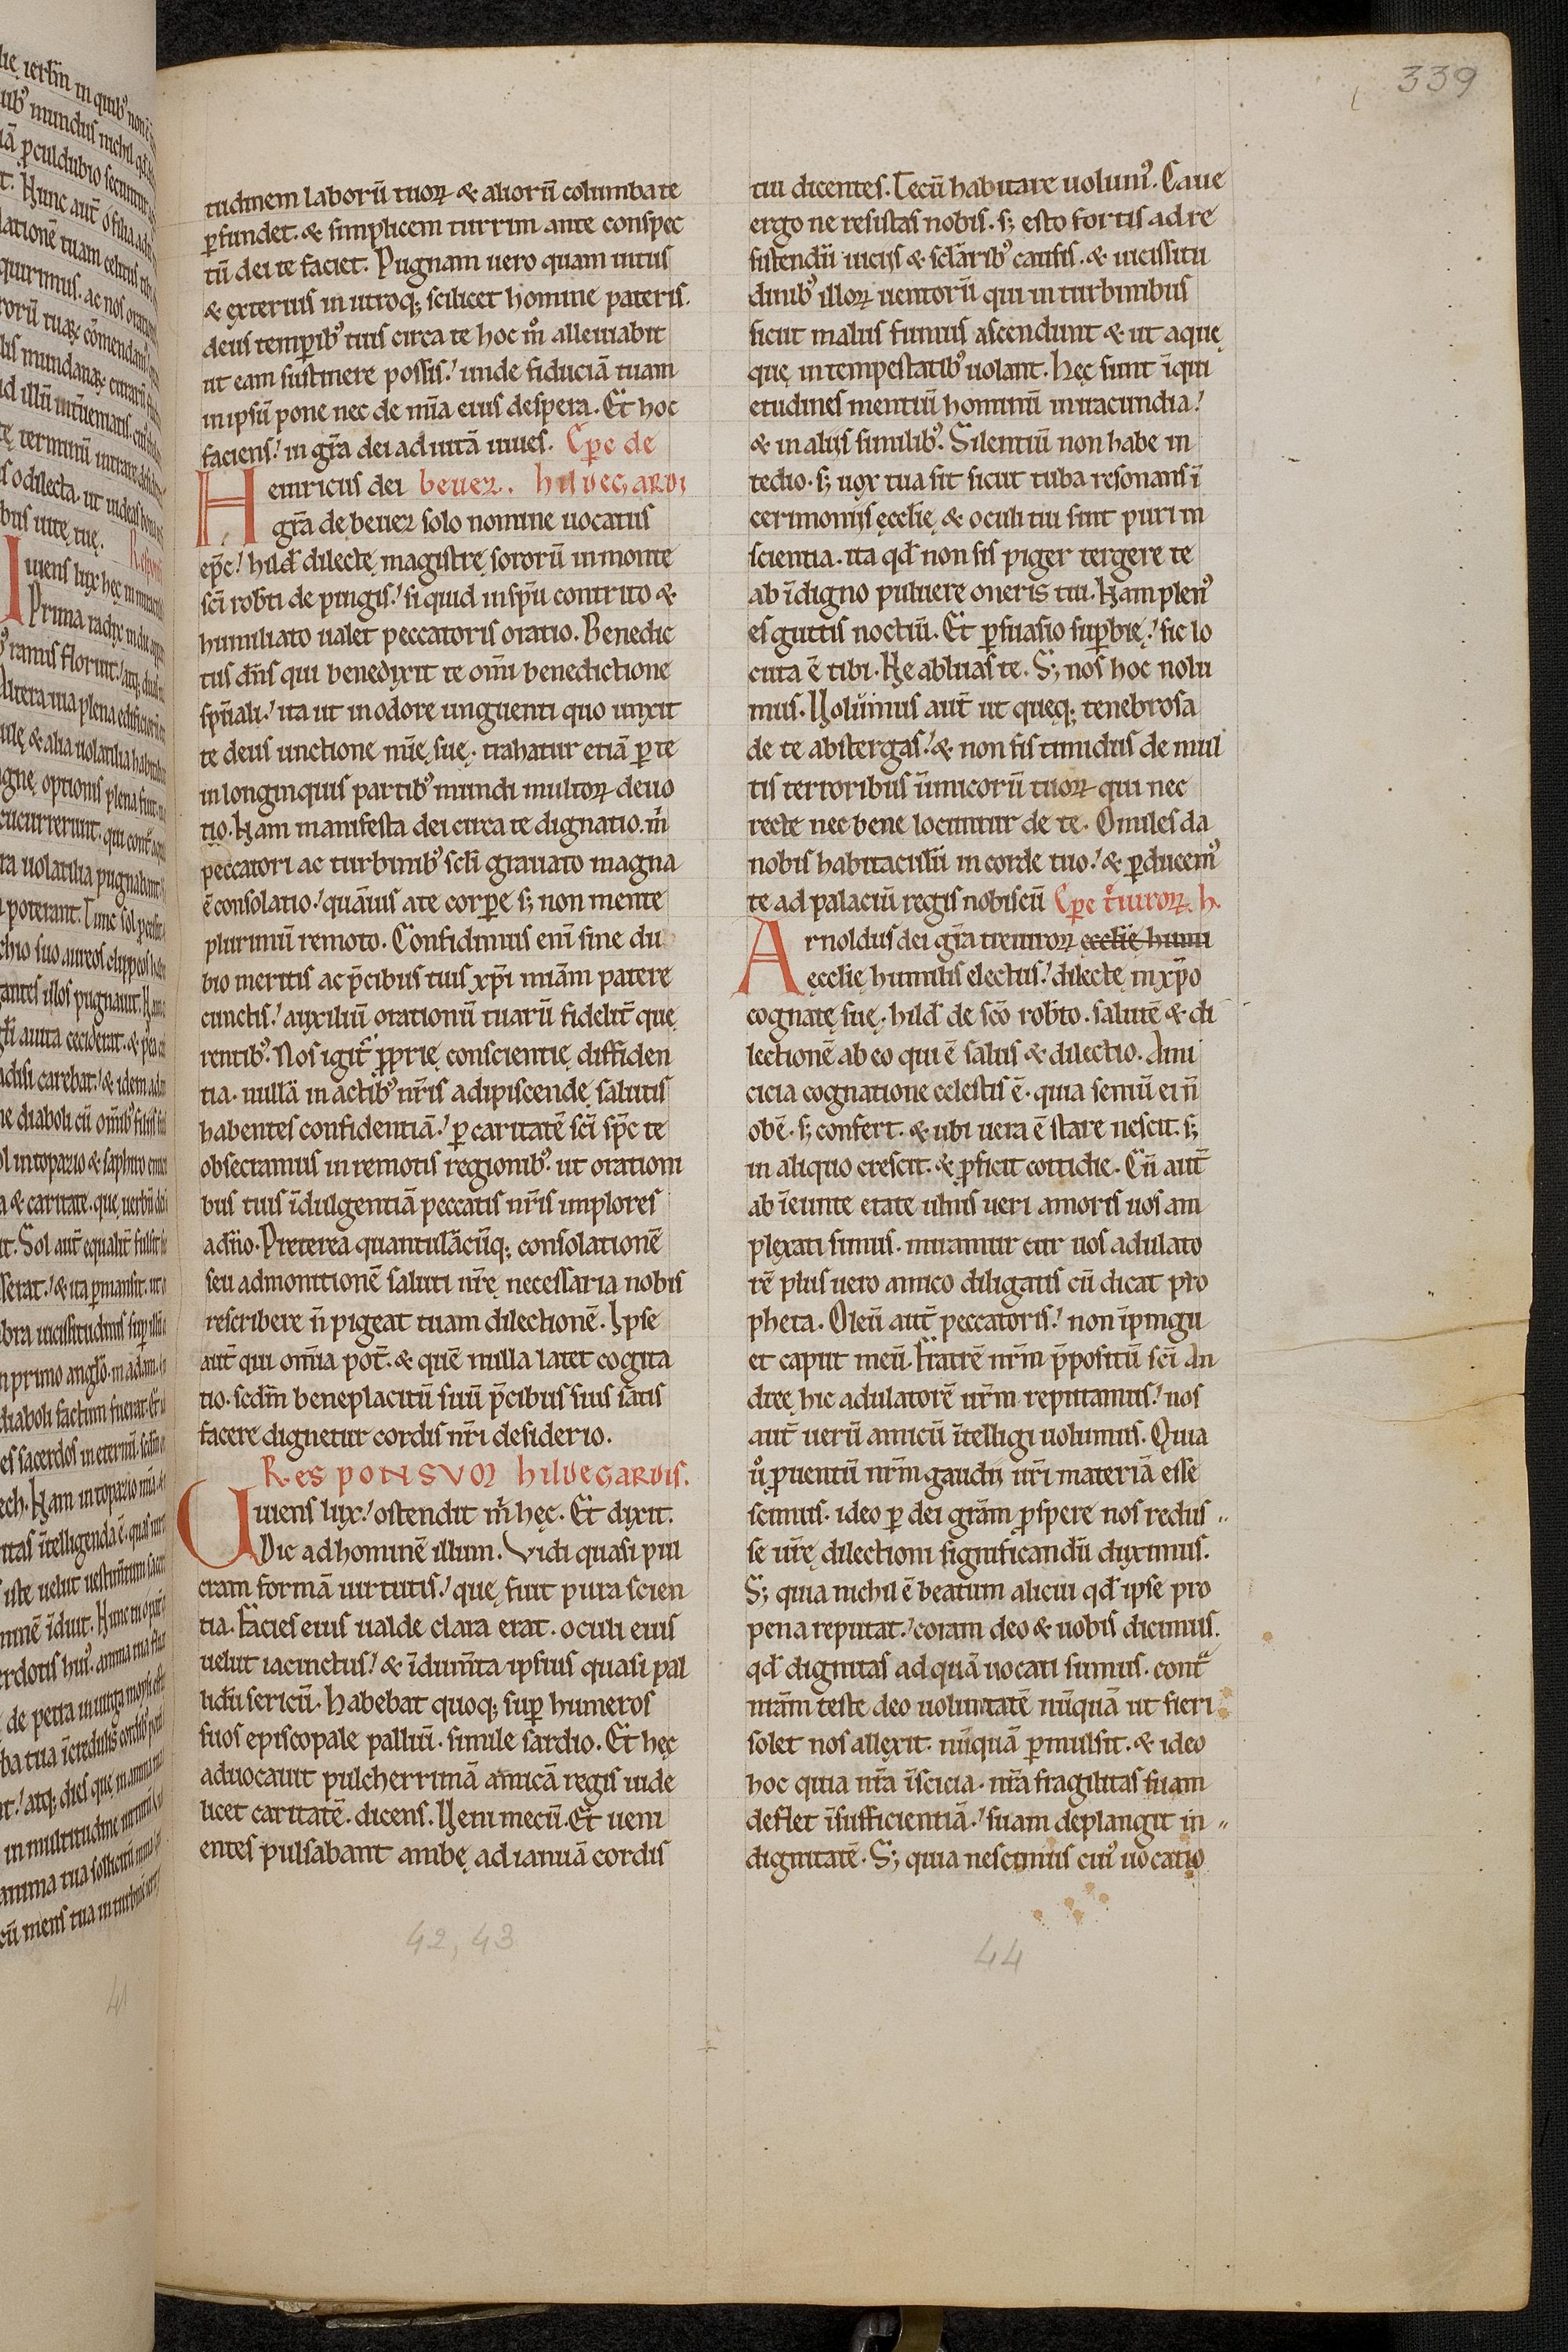 339
tudinem laborū tuoꝝ & aliorū columba te
ꝑfundet. & simplicem turrim ante conspec
tū dei te faciet. Pugnam uero quam intus
& exterius in utroq; scilicet homine pateris.
deus temꝑib᷒ tuis circa te hoc m̊ alleuiabit
ut eam sustinere possis.' unde fiduciā tuam
in ipsū pone nec de mīa eius despera. Et hoc
faciens.' in gr̄a dei ad uitā uiues. Ep̄c de
Heinricus dei beuez. hildegardi
gr̄a de beuez solo nomine uocatus
ep̄c.' hild̄ dilectę magistrę sororū in monte
sc̄i rob̄ti de pingis.' si quid in sp̄u contrito &
humiliato ualet peccatoris oratio. Benedic
tus dn̄s qui benedixit te om̄i benedictione
sp̄uali.' ita ut in odore unguenti quo unxit
te deus unctione mīe suę. trahatur etiā ꝑ te
in longinquis partib᷒ mundi multoꝝ deuo
tio. Nam manifesta dei circa te dignatio. m̄
peccatori ac turbinib᷒ scl̄i grauato magna
ē consolatio.' quāuis a te corꝑe s; non mente
plurimū remoto. Confidimus eni sine du
bio meritis ac p̄cibus tuis xp̄i miām patere
cunctis.' auxiliū orationū tuarū fidelit̄ quę
rentib᷒. Nos igit̄ ꝓprię conscientię diffiden
tia. nullā in actib᷒ nr̄is adipiscendę salutis
habentes confidentiā.' ꝑ caritatē sc̄i sp̄c te
obsecramus in remotis regionib᷒. ut orationi
bus tuis īdulgentiā peccatis nr̄is implores
a dn̄o. Preterea quantulācūq; consolationē
seu admonitionē saluti nr̄ę necessaria nobis
rescribere n̄ pigeat tuam dilectionē. Ipse
aut̄ qui om̄ia pot̄. & quē nulla latet cogita
tio. sedm̄ beneplacitū suū p̄cibus suis satis
facere dignetur cordis nr̄i desiderio.
Responsum hildegardis.
Uiuens lux.' ostendit m̄ hęc. Et dixit.
Dic ad hominē illum. Vidi quasi pul
cram formā uirtutis.' quę fuit pura scien
tia. Facies eius ualde clara erat. oculi eius
uelut iacinctus.' & īdum̄ta ipsius quasi pal
lidū sericū. habebat quoq; suꝑ humeros
suos episcopale palliū. simile sardio. Et hęc
aduocauit pulcherrimā amicā regis uide
licet caritatē. dicens. Ueni mecū. Et ueni
entes pulsabant ambę ad ianuā cordis
42, 43
tui dicentes. Tecū habitare uolum᷒. Caue
ergo ne resistas nobis. s; esto fortis ad re
sistendū uiciis & sclārib᷒ causis. & uicissitu
dinib᷒ illoꝝ uentorū qui in turbinibus
sicut malus fumus ascendunt & ut aquę
quę in tempestatib᷒ uolant. hęc sunt īqui
etudines mentiū hominū in iracundia.'
& in aliis similib᷒. Silentiū non habe in
tedio. s; uox tua sit sicut tuba resonans ī
cerimoniis ęcclię & oculi tui sint puri in
scientia. ita qd̄ non sis piger tergere te
ab īdigno puluere oneris tui. Nam plen᷒
es guttis noctiū. Et ꝑsuasio suꝑbię.' sic lo
cuta ē tibi. Ne abluas te. S; nos hoc nolu
mus. Uolumus aut̄ ut queq; tenebrosa
de te abstergas.' & non sis timidus de mul
tis terroribus inimicorū tuoꝝ qui nec
recte nec bene locuntur de te. O miles da
nobis habitaculū in corde tuo.' & ꝑducem᷒
te ad palaciū regis nobiscū Ep̄c t̄uiroꝝ. h.
Arnoldus dei gr̄a treuiroꝝ ecclię humi
ęcclię humilis electus.' dilectę in xp̄o
cognatę suę. hild̄ de sc̄o rob̄to. salutē & di
lectionē ab eo qui ē salus & dilectio. Ami
cicia cognatione celestis ē. quia seniū ei n̄
obē. s; confert. & ubi uera ē stare nescit. s;
in aliquo crescit. & ꝓficit cottidie. Cū aut̄
ab īeunte etate ulnis ueri amoris uos am
plexati simus. miramur cur uos adulato
rē plus uero amico diligatis cū dicat pro
pheta. Oleū aut̄ peccatoris.' non īpingu
et caput meū. Fratrē nr̄m p̄positū sc̄i An
dreę hic adulatorē ur̄m reputamus.' nos
aut̄ uerū amicū ītelligi uolumus. Quia
u̇̊ ꝓuentū nr̄m gaudii ur̄i materiā esse
scimus. ideo ꝑ dei grām ꝓspere nos redis
se ur̄ę dilectioni significandū duximus.
S; quia nichil ē beatum alicui qd̄ ipse pro
pena reputat.' coram deo & uobis dicimus.
qd̄ dignitas ad quā uocati sumus. cont̄
nr̄am teste deo uoluntatē nūquā ut fieri
solet nos allexit. nūquā ꝑmulsit. & ideo
hoc quia nr̄a īscicia. nr̄a fragilitas suam
deflet īsufficientiā.' suam deplangit in
dignitatē. S; quia nescimus cui᷒ uocatio
44